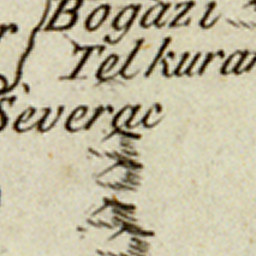 Bogazi
Telkuran
Severac